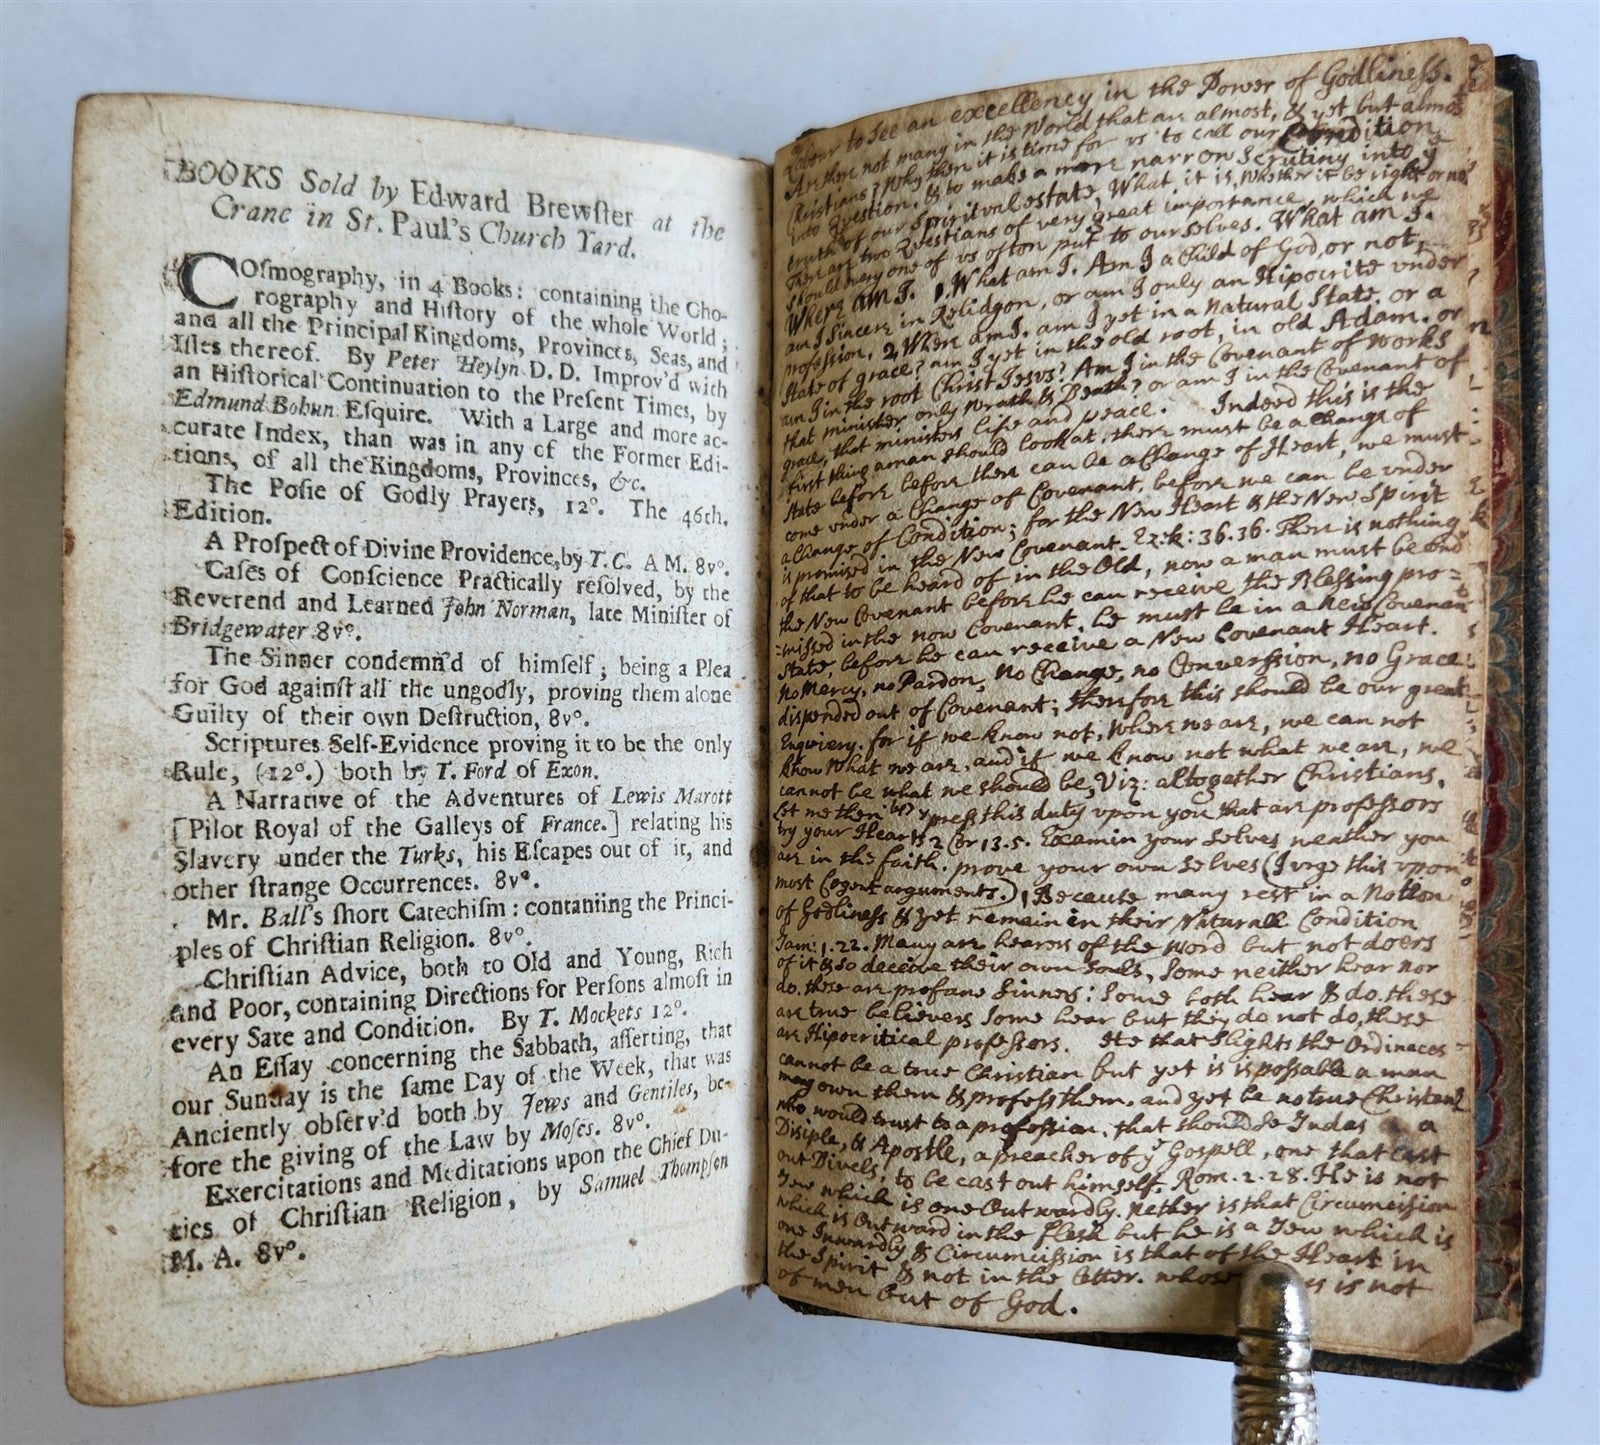 BOOKS Sold by Edward Brewſter at the
Crane in St. Paul's Church Yard.
COſmography, in 4 Books: containing the Cho-
rography and Hiſtory of the whole World;
and all the Principal Kingdoms, Provinces, Seas, and
Iſles thereof. By Peter Heylyn D. D. Improv'd with
an Hiſtorical Continuation to the Preſent Times, by
Edmund Bohun Eſquire. With a Large and more ac-
curate Index, than was in any of the Former Edi-
tions, of all the Kingdoms, Provinces, &c.
The Poſie of Godly Prayers, 12°. The 46th.
Edition.
A Proſpect of Divine Providence, by T. C. A M. 8v°.
Caſes of Conſcience Practically reſolved, by the
Reverend and Learned John Norman, late Miniſter of
Bridgewater 8v°.
The Sinner condemn'd of himſelf; being a Plea
for God againſt all the ungodly, proving them alone
Guilty of their own Deſtruction, 8v°.
Scriptures Self-Evidence proving it to be the only
Rule, (12°.) both by T. Ford of Exon.
A Narrative of the Adventures of Lewis Marott
[Pilot Royal of the Galleys of France.] relating his
Slavery under the Turks, his Eſcapes out of it, and
other ſtrange Occurrences. 8v°.
Mr. Ball's ſhort Catechiſm: contaniing the Princi-
ples of Chriſtian Religion. 8v°.
Chriſtian Advice, both to Old and Young, Rich
and Poor, containing Directions for Perſons almoſt in
every Sate and Condition. By T. Mockets 12°.
An Eſſay concerning the Sabbath, aſſerting, that
our Sunday is the ſame Day of the Week, that was
Anciently obſerv'd both by Jews and Gentiles, be-
fore the giving of the Law by Moſes. 8v°.
Exercitations and Meditations upon the Chief Du-
ties of Chriſtian Religion, by Samuel Thompſon
M. A. 8v°.
Labour to See an excellency in the Power of Godliness.
Are there not many in the World that are almost, & yet but almost
Christians? Why then it is time for us to call our Condition
into Question, & to make a more narrow Scrutiny into ye
truth of our Spiritual estate, What it is, Whether it be right or no
There are two Questions of very great importance, which we
Should every one of us often put to our selves. What am I.
Where am I. 1. What am I. Am I a Child of God, or not,
am I Sincere in Relidgon, or am I only an Hipocrite under
profession. 2 Where am I. am I yet in a Natural State, or a
State of grace? am I yet in the old root, in old Adam, or
am I in the root Christ Jesus? Am I in the Covenant of works
that minister only Wrath & Death? or am I in the Covenant of
grace, that ministers life and peace. Indeed this is the
first thing a man should look at, there must be a Change of
State before before there can be a Change of Heart, we must
come under a Change of Covenant, before we can be under
a Change of Condition; for the New Heart & the New Spirit
is promised in the New Covenant. Ezek: 36.36. There is nothing
of that to be heard of in the Old, now a man must be und
the New Covenant before he can receive the Blessing pro=
=missed in the now Covenant. he must be in a New Covenan
State, before he can receive a New Covenant Heart.
No Mercy, no Pardon, No Change, no Converssion, no Grace
dispended out of Covenant; therefore this should be our great
Enquiery. for if we know not, where we are, we can not
know What we are, and if we know not what we are, we
cannot be what we should be, Viz: altogether Christians.
Let me then press this duty upon you that are professors
try your Hearts 2 Cor 13.5. Examin your Selves neather you
are in the faith. prove your own Selves (I urge this upon
most Cogent arguments.) 1, Because many rest in a Notion
of Godliness & yet remain in their Naturall Condition
Jam: 1.22. Many are hearers of the word but not doers
of it & so deceive their own Souls, Some neither hear nor
do. these are profane Sinners: Some both hear & do. these
are true believers Some hear but they do not do, these
are Hipocritical professors. He that Slights the Ordinaces
cannot be a true Christian but yet is is possable a man
may own them & profess them. and yet be no true Christan
who would trust to a profession, that should Se Judas a
Disiple, & Apostle, a preacher of ye Gospell, one that cast
out Divels, to be cast out himself. Rom. 2.28. He is not
Jew which is one Outwardly. nether is that Circumcission
which is Outward in the flesh but he is a Jew which is
one Inwardly & Circumcission is that of the Heart in
the Spirit & not in the letter. whose is not
of men but of God.